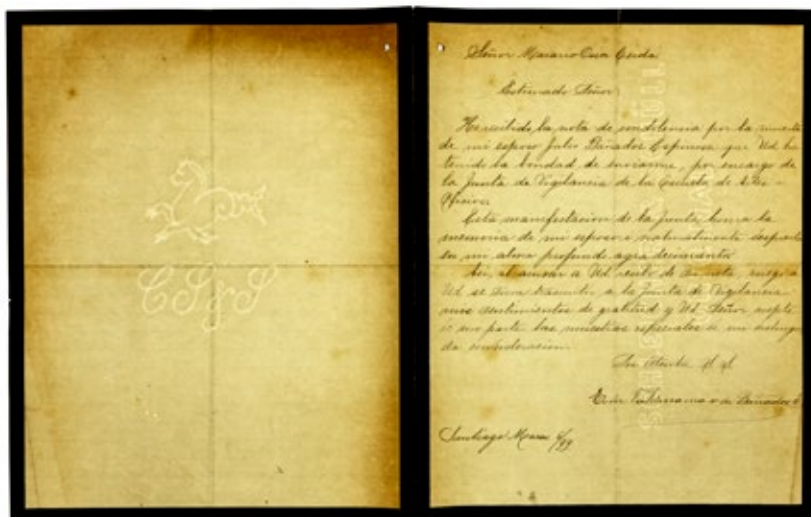 CSyS
Señor Mariano Casa Cerda
Estimado Señor:
He recibido la nota de condolencia por la muerte
de mi esposo Julio Bañados Espinosa que Ud ha
tenido la bondad de enviarme, por encargo de
la Junta de Vigilancia de la Escuela de Artes i
Oficios
Esta manifestacion de la Junta honra la
memoria de mi esposo i naturalmente despierta
en mi alma profundo agradecimiento
Asi, al acusar a Ud recibo de su nota, ruego a
Ud se sirva trasmitir a la Junta de Vigilancia
mis sentimientos de gratitud y Ud. Señor acepte
de mi parte las muestras especiales de mi distingui
da consideracion.
Su Atenta S. S.
Valderrama v. de Bañados E
Santiago Marzo /99